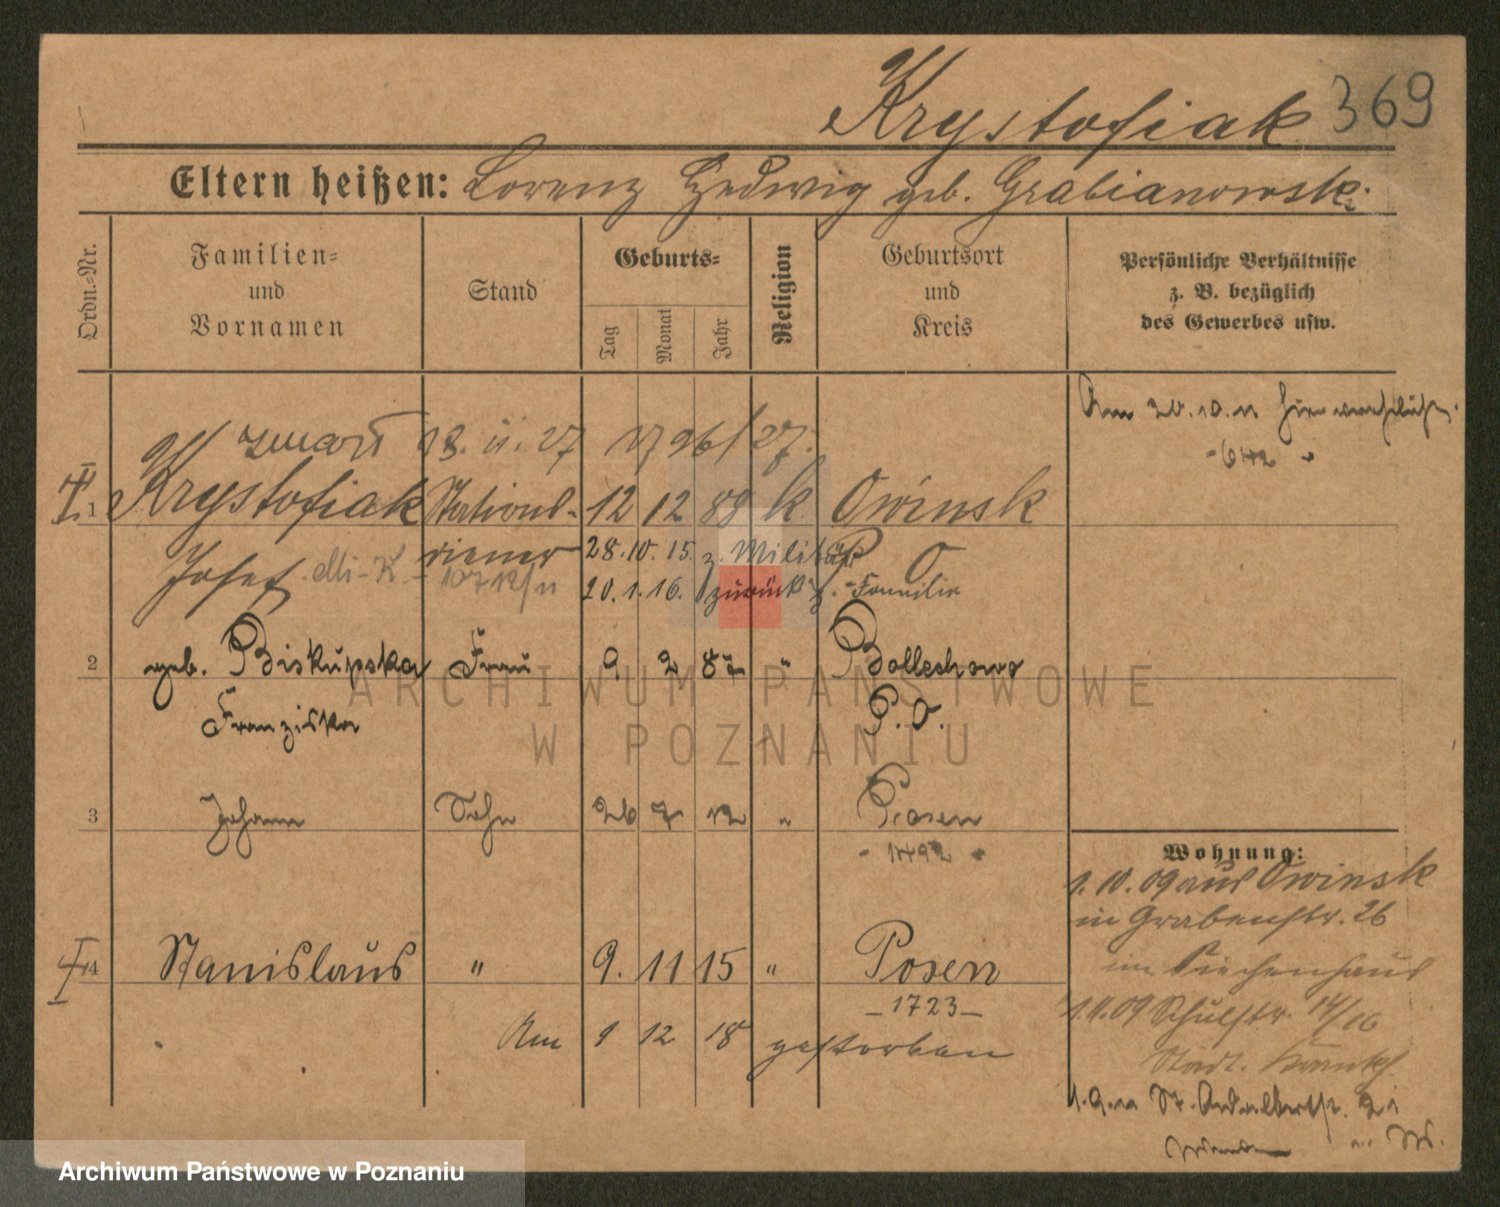 Krystofiak 369
Eltern heißen: Lorenz Hedwig geb. Grabianowski
Ordn.-Nr.
Familien- und Vornamen
Stand
Geburts-
Tag
Monat
Jahr
Religion
Geburtsort und Kreis
Persönliche Verhältnisse z. B. bezüglich des Gewerbes usw.
Am 20.10.11 hier
- 642 -
zmarł 13. 11. 27 1796/27.
1 Krystofiak 12 12 88 k Owinsk
diener 28.10.15. z. Militär P. O
Josef 20.1.16. zurück z. Familie
2 geb. Biskupska Frau 9 2 87 " Bolleshowo
Franziska P. O.
3 Johann Sohn 26 7 12 " Posen
- 1492 -
Wohnung:
1.10.09 aus Owinsk
in Grabenstr. 26
im Siechenhaus
4 Stanislaus " 9. 11 15 " Posen
- 1723 -
1.11.09 Schulstr. 14/16
Am 9 12 18 gestorben
Städt. Krankh
1.9.11 St. Adalbertstr. 21
ARCHIWUM PAŃSTWOWE
W POZNANIU
Archiwum Państwowe w Poznaniu